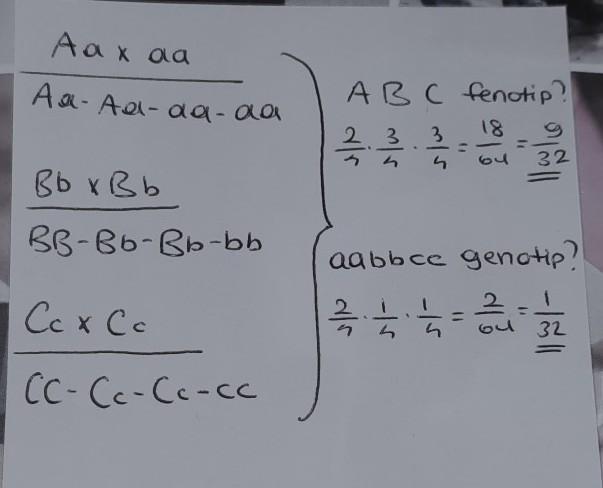 Aa x aa
Aa - Aa - aa - aa
Bb x Bb
BB - Bb - Bb - bb
Cc x Cc
CC - Cc - Cc - cc
A B C fenotip?
2/4 . 3/4 . 3/4 = 18/64 = 9/32
aabbcc genotip?
2/4 . 1/4 . 1/4 = 2/64 = 1/32